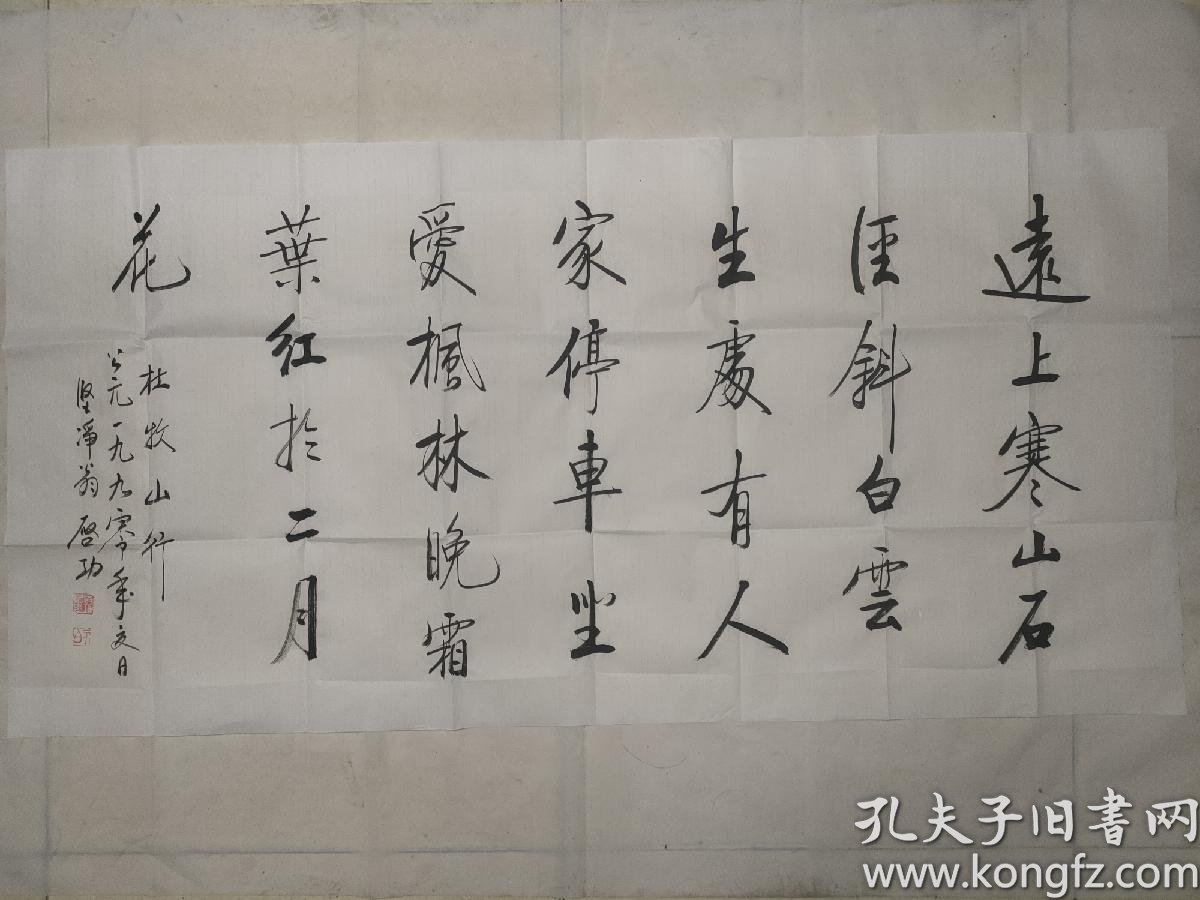 遠上寒山石
徑斜白雲
生處有人
家停車坐
愛楓林晚霜
葉紅於二月
花
杜牧山行
公元一九九零年夏日
堅淨翁啓功
孔夫子旧書网
www.kongfz.com